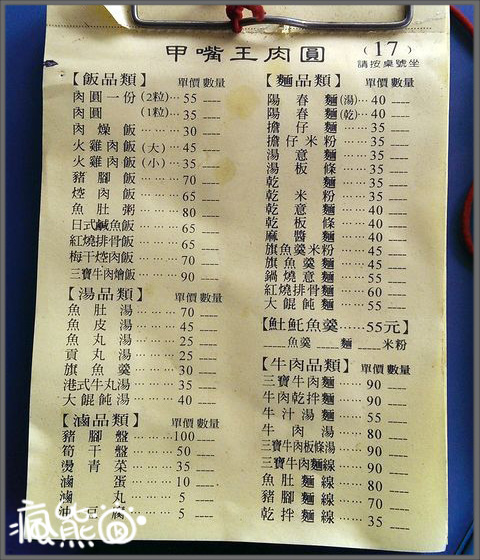 甲嘴王肉圓
(17)
請按桌號坐
【飯品類】 單價 數量
肉圓一份(2粒)…55
肉圓 (1粒)…35
肉燥飯………30
火雞肉飯(大)…45
火雞肉飯(小)…35
豬腳飯………70
焢肉飯………65
魚肚粥………80
日式鹹魚飯……65
紅燒排骨飯……65
梅干焢肉飯……70
三寶牛肉燴飯…90
【湯品類】 單價 數量
魚肚湯………70
魚皮湯………45
魚丸湯………25
貢丸湯………25
旗魚羹………30
港式牛丸湯……35
大餛飩湯………40
【滷品類】 單價 數量
豬腳盤………100
筍干盤………50
燙青菜………35
滷蛋………10
滷丸………5
油豆腐………5
【麵品類】 單價 數量
陽春麵(湯)…40
陽春麵(乾)…40
擔仔麵………35
擔仔米粉……35
湯意麵………35
湯板條………35
乾麵………35
乾米粉………35
乾意麵………40
乾板條………40
麻醬麵………40
旗魚羹米粉…45
旗魚羹麵……45
鍋燒意麵……55
紅燒排骨麵…60
大餛飩麵……55
【𩵚魠魚羹……55元】
魚羹 麵 米粉
【牛肉品類】 單價 數量
三寶牛肉麵……90
牛肉乾拌麵……90
牛汁湯麵………55
牛肉湯………80
三寶牛肉板條湯…90
三寶牛肉麵線…90
魚肚麵線………80
豬腳麵線………70
乾拌麵線………35
瘋熊